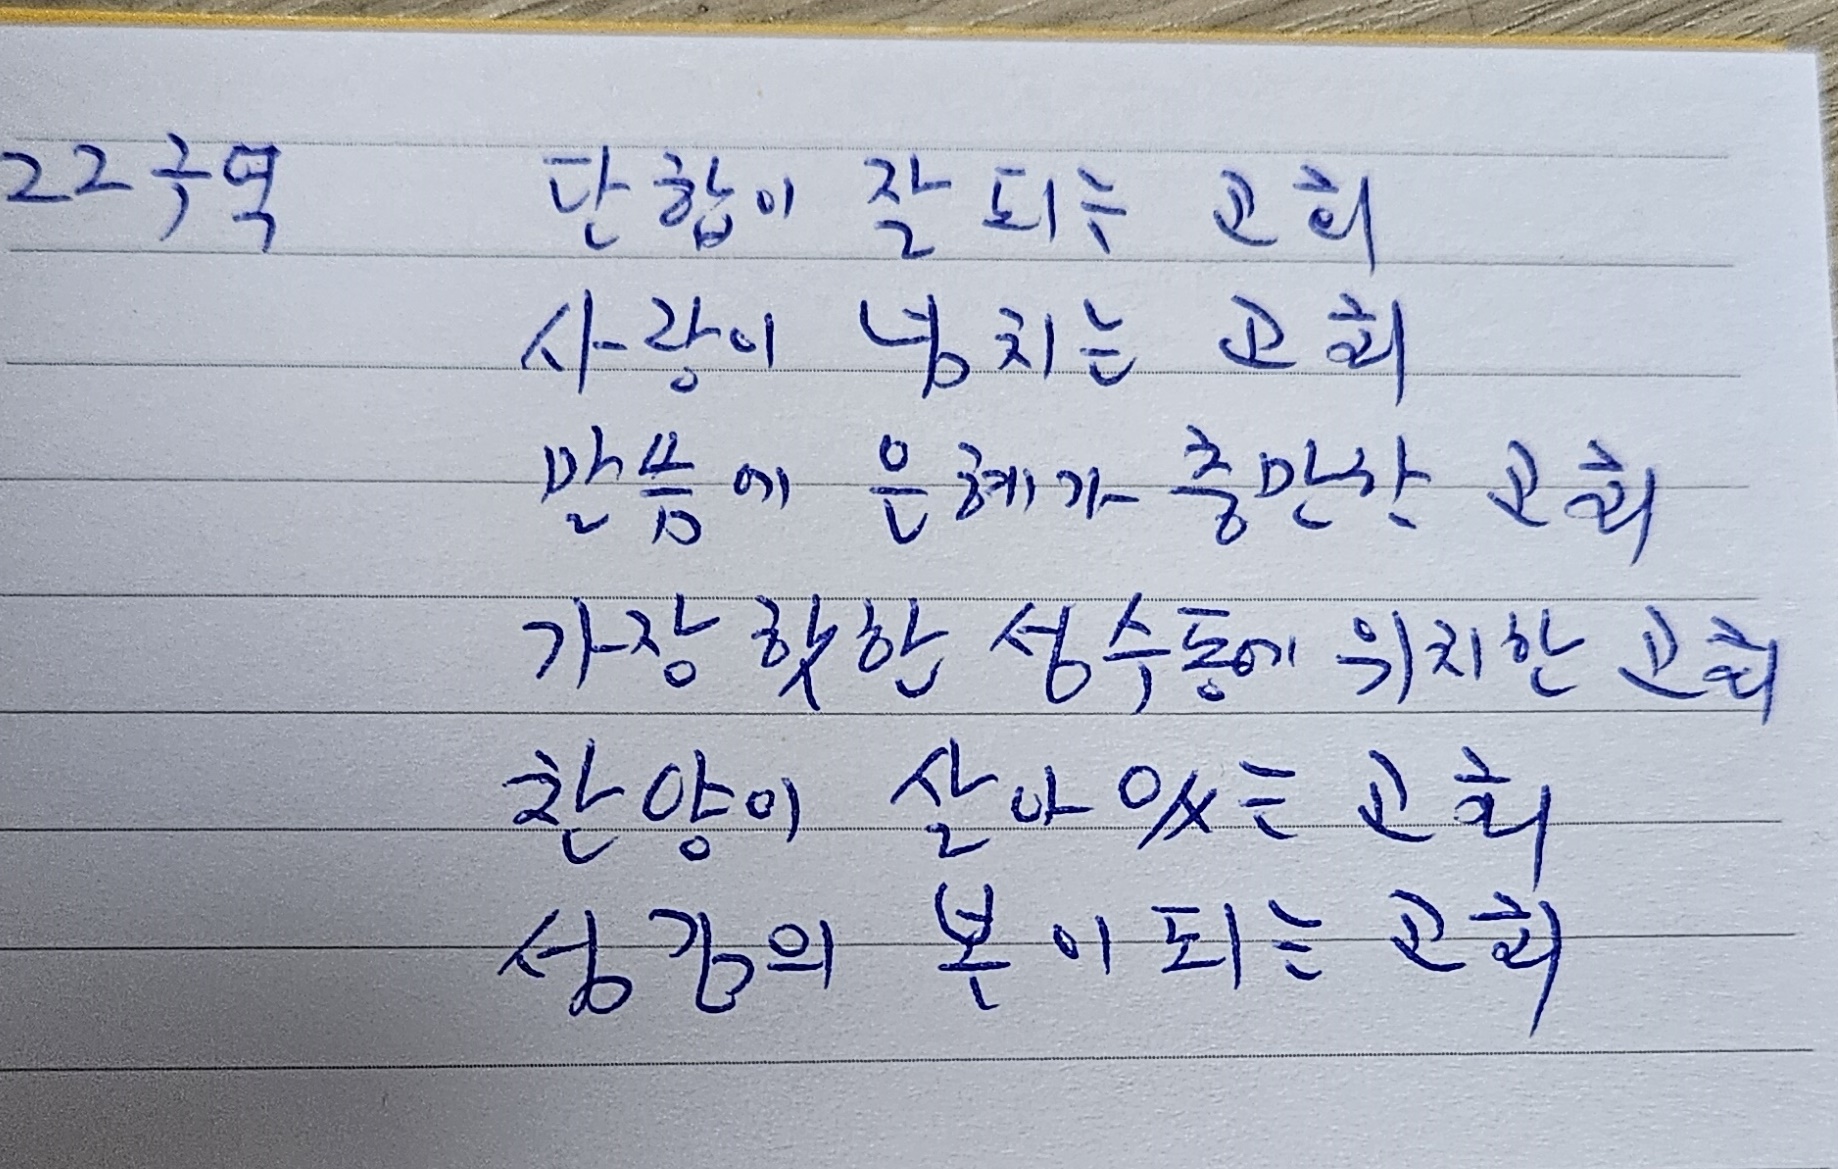 22구역 단합이 잘 되는 교회
사랑이 넘치는 교회
말씀에 은혜가 충만한 교회
가장 핫한 성수동에 위치한 교회
찬양이 살아있는 교회
섬김의 본이 되는 교회